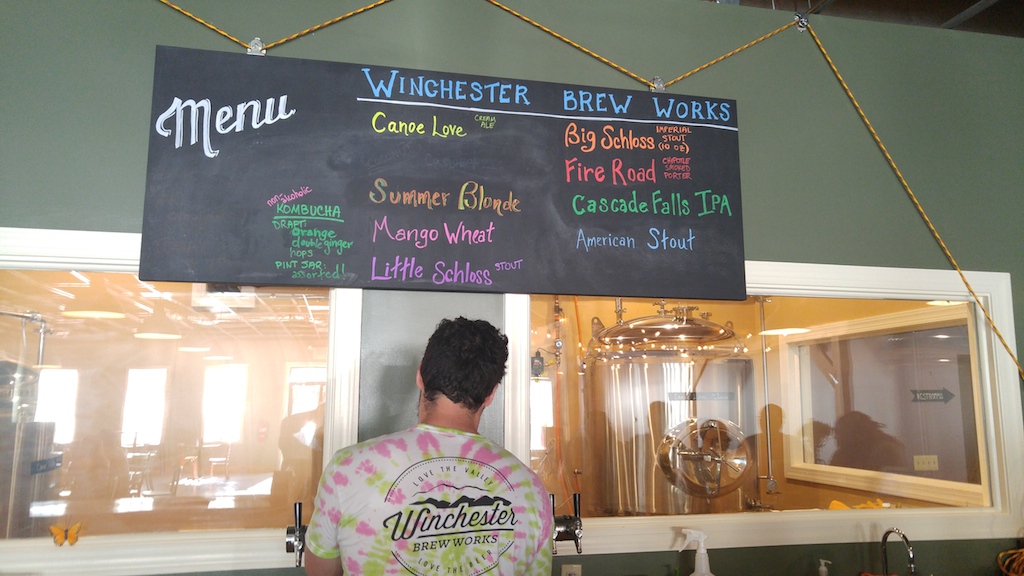 Menu
WINCHESTER BREW WORKS
Canoe Love CREAM ALE
Summer Blonde
Mango Wheat
Little Schloss STOUT
Big Schloss IMPERIAL STOUT (10 OZ)
Fire Road CHIPOTLE SMOKED PORTER
Cascade Falls IPA
American Stout
non-alcoholic
KOMBUCHA
DRAFT:
Orange
double ginger
hops
PINT JAR:
assorted!
LOVE THE VALLEY
Winchester
BREW WORKS
LOVE THE BEER
RESTROOMS